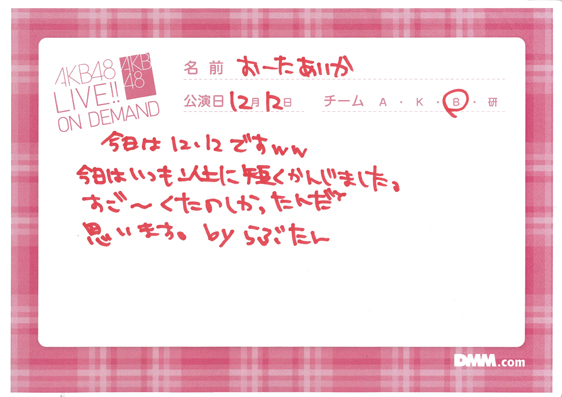 AKB48
LIVE!!
ON DEMAND
AKB
48
名前 おーたあいか
公演日 12月12日 チーム A・K・B・研
今日は12.12ですww
今日はいつも以上に短くかんじました。
すご〜くたのしかったんだと
思います。by らぶたん
DMM.com